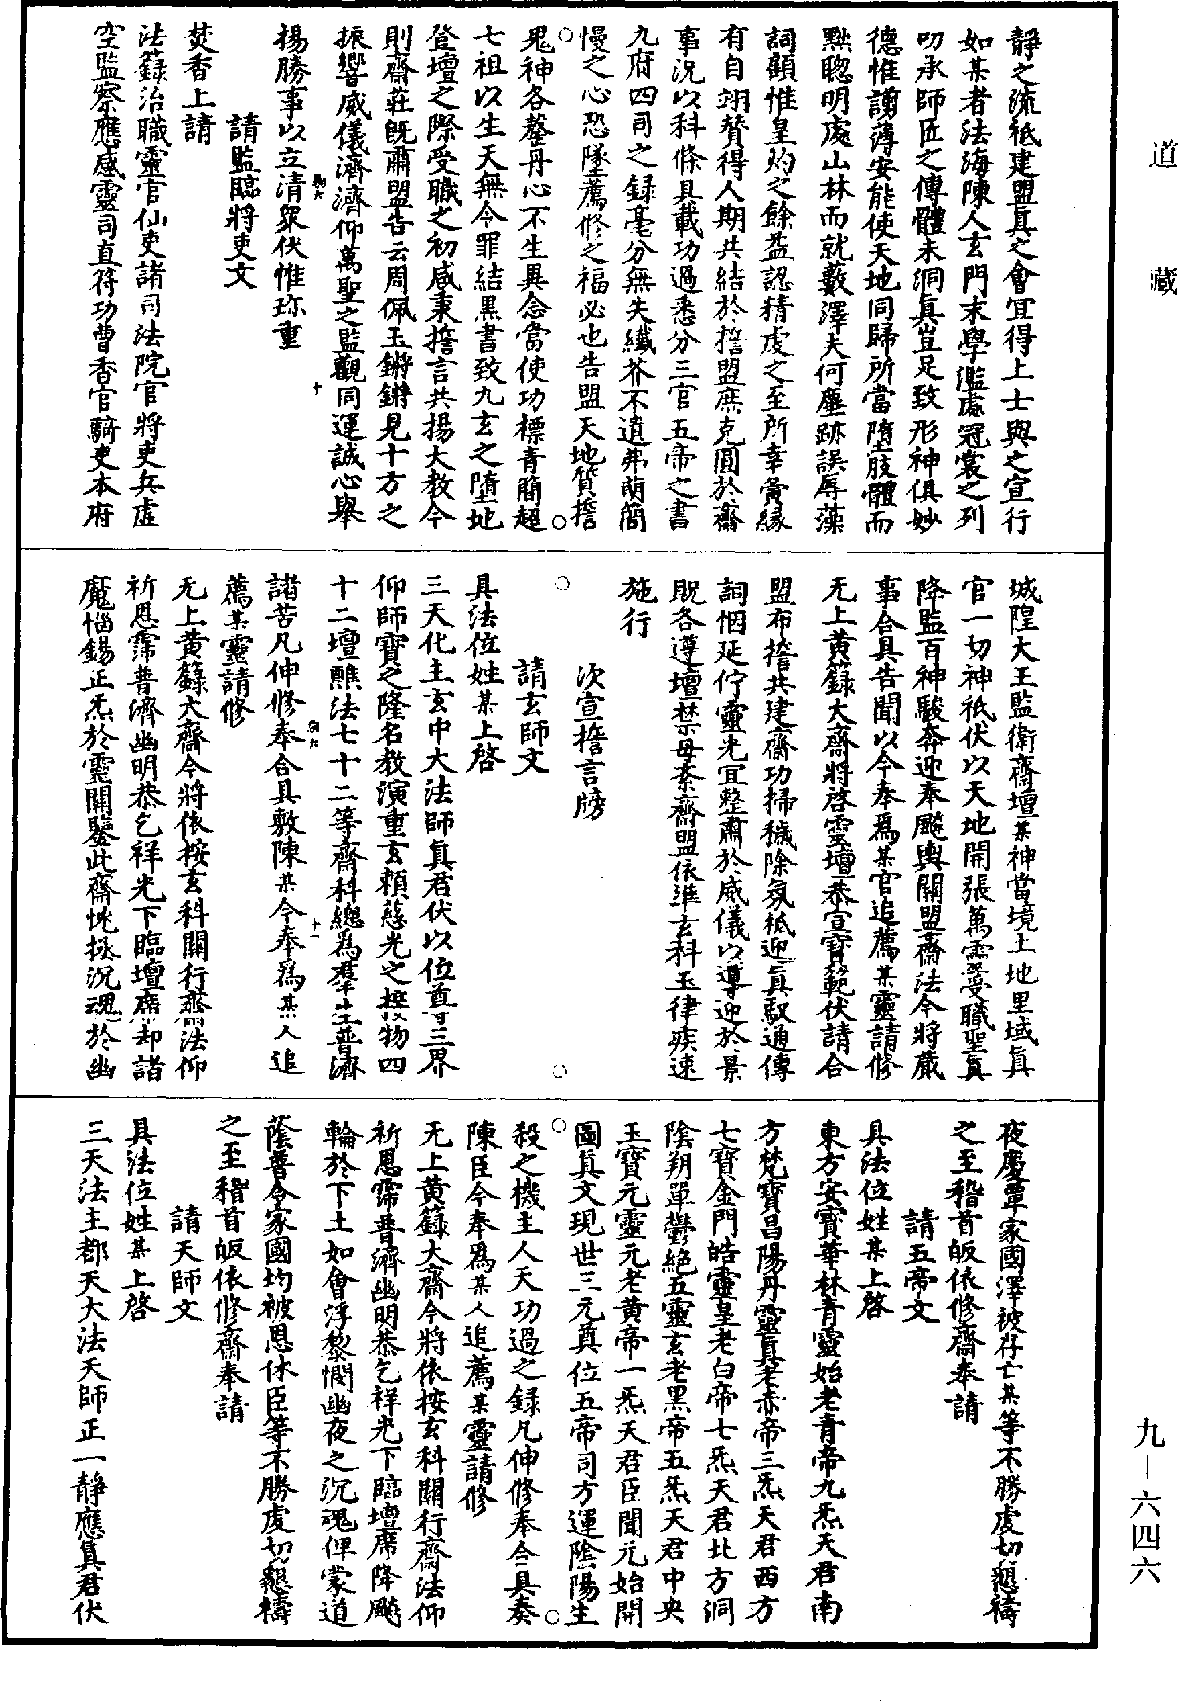 道藏
靜之流祗建盟真之會宜得上士與之宣行
如某者法海陳人玄門末學濫處冠裳之列
叨承師匠之傳體未洞真豈足致形神俱妙
德惟謭薄安能使天地同歸所當墮肢體而
黜聰明處山林而就藪澤夫何塵跡誤辱藻
詞顧惟皇灼之餘益認精虔之至所幸夤緣
有自翊贊得人期共結於誓盟庶克圓於齋
事況以科條具載功過悉分三官五帝之書
九府四司之録毫分無失纖芥不遺弗萌簡
慢之心恐墜薦修之福必也告盟天地質誓
鬼神各罄丹心不生異念當使功標青簡超
七祖以生天無令罪結黑書致九玄之墮地
登壇之際受職之初咸秉誓言共揚大教今
則齋莊既肅盟告云周佩玉鏘鏘見十方之
振響威儀濟濟仰萬聖之監觀同運誠心舉
揚勝事以立清衆伏惟珍重
請監臨將吏文
焚香上請
法籙治職靈官仙吏諸司法院官將吏兵虛
空監察應感靈司直符功曹香官騎吏本府
城隍大王監衛齋壇某神當境土地里域真
官一切神祇伏以天地開張萬靈受職聖真
降監百神駿奔迎奉飈輿關盟齋法今將蕆
事合具告聞以今奉爲某官追薦某靈請修
无上黄籙大齋將啓靈壇恭宣寶範伏請合
盟布誓共建齋功掃穢除氛祗迎真馭通傳
詞悃延佇靈光宜整肅於威儀以導迎於景
貺各遵壇禁毋紊齋盟依準玄科玉律疾速
施行
次宣誓言牓
請玄師文
具法位姓某上啓
三天化主玄中大法師真君伏以位尊三界
仰師寶之隆名教演重玄頼慈光之接物四
十二壇醮法七十二等齋科總爲羣生普濟
諸苦凡伸修奉合具敷陳某今奉爲某人追
薦某靈請修
无上黄籙大齋今將依按玄科關行齋法仰
祈恩霈普濟幽明恭乞祥光下臨壇席却諸
魔惱錫正炁於靈關鑒此齋悰拯沉魂於幽
夜慶覃家國澤被存亡某等不勝虔切懇禱
之至稽首皈依修齋奉請
請五帝文
具法位姓某上啓
東方安寶華林青靈始老青帝九炁天君南
方梵寶昌陽丹靈真老赤帝三炁天君西方
七寶金門皓靈皇老白帝七炁天君北方洞
陰朔單鬱絶五靈玄老黑帝五炁天君中央
玉寶元靈元老黄帝一炁天君臣聞元始開
圖真文現世三元奠位五帝司方運陰陽生
殺之機主人天功過之録凡伸修奉合具奏
陳臣今奉爲某人追薦某靈請修
无上黄籙大齋今將依按玄科關行齋法仰
祈恩霈普濟幽明恭乞祥光下臨壇席降飈
輪於下土如會浮黎憫幽夜之沉魂俾蒙道
蔭普令家國均被恩休臣等不勝虔切懇禱
之至稽首皈依修齋奉請
請天師文
具法位姓某上啓
三天法主都天大法天師正一靜應真君伏
九—六四六